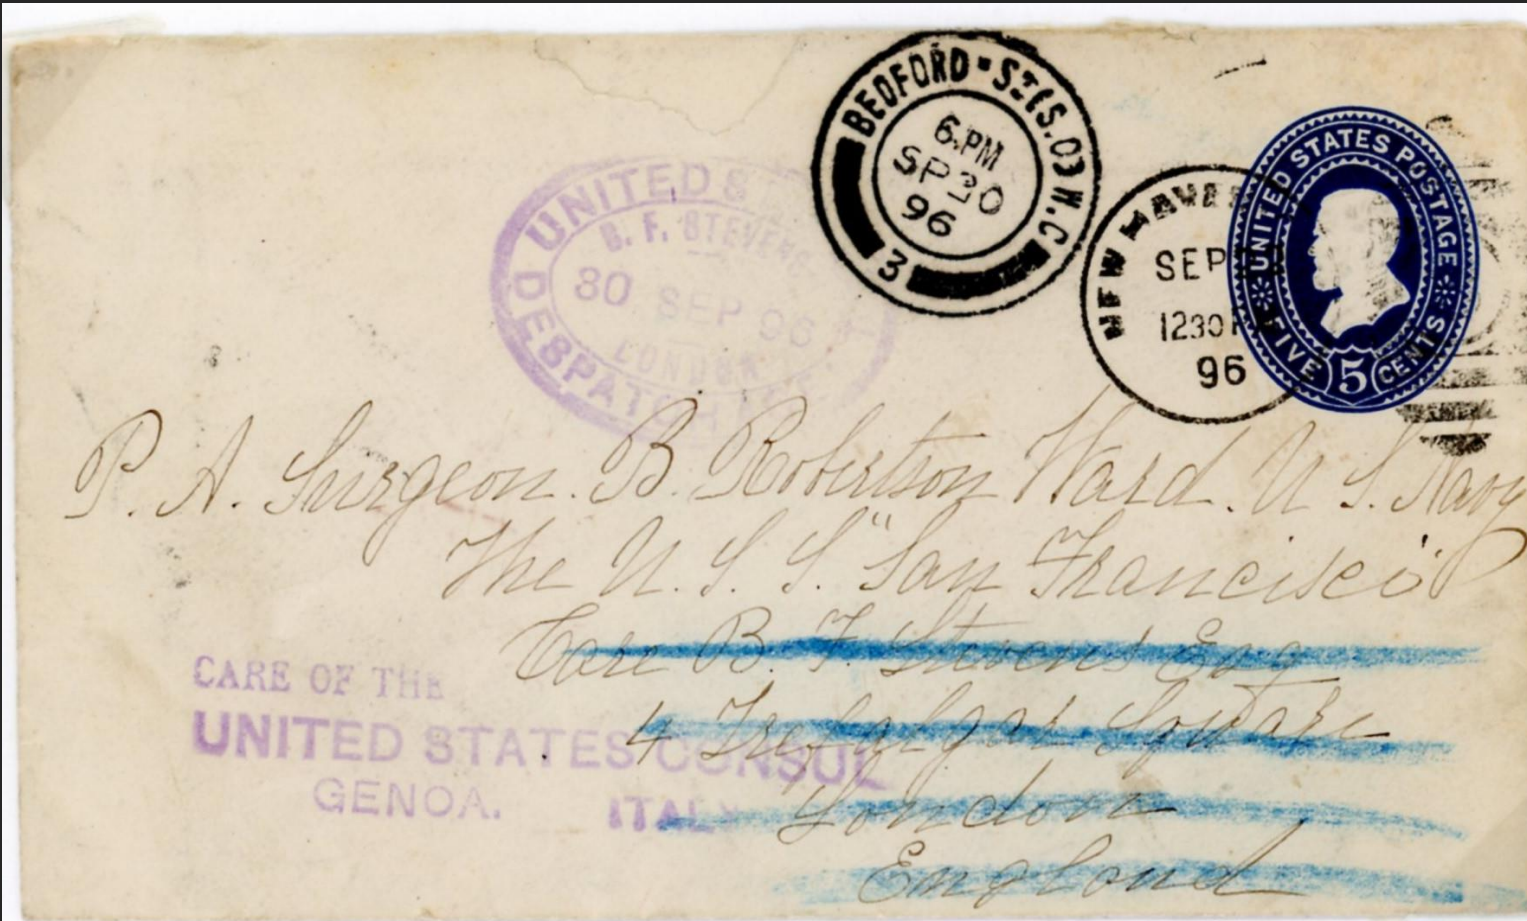 BEDFORD ST (S.O) W.C
6.PM
SP 30
96
3
UNITED
B. F. STEVENS
30 SEP 96
LONDON
DESPATCH
NEW HAVEN
SEP
1230
96
UNITED STATES POSTAGE
FIVE 5 CENTS
P. A. Surgeon. B. Robertson Ward. U S. Navy
The U. S. S. "San Francisco"
Care B. F. Stevens Esq
4 Trafalgar Square
London
England
CARE OF THE
UNITED STATES CONSUL
GENOA. ITALY